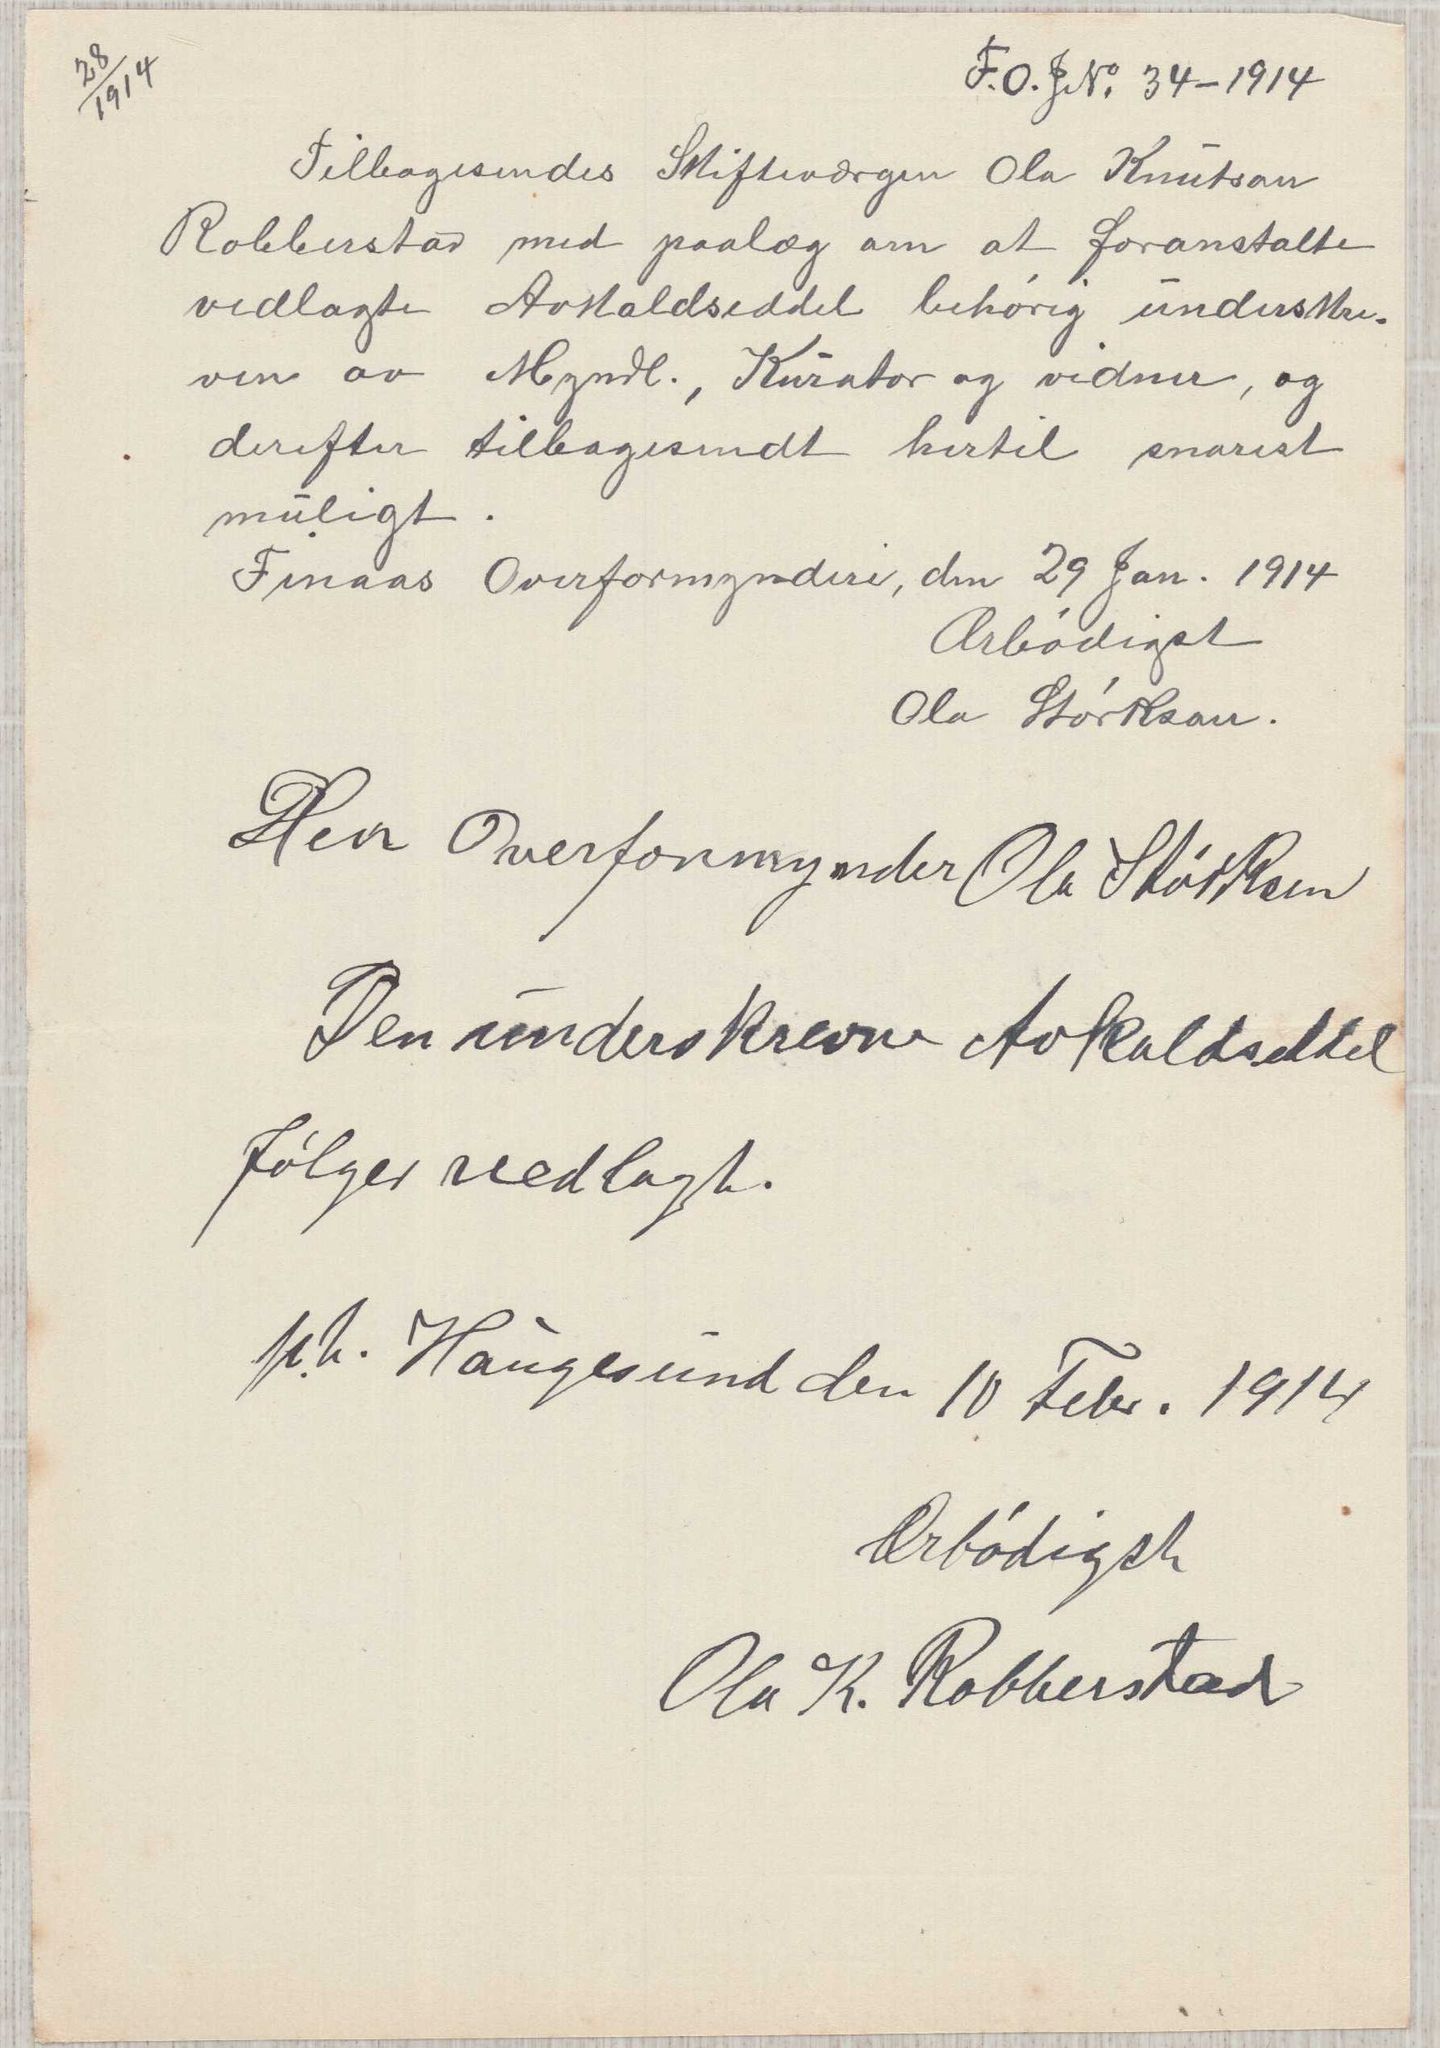 28/1914
F.O.J.No. 34-1914
Tilbagesendes Skifteværgen Ola Knutson
Robberstad med paalæg om at foranstalte
vedlagte Avkaldseddel behørig underskre-
ven av Myndl., Kurator og vidner, og
derefter tilbagesendt hertil snarest
muligt.
Finaas Overformynderi, den 29 Jan. 1914
Ærbødigst
Ola Størkson.
Herr Overformynder Ola Størksen
Den underskrevne Avkaldseddel
følger vedlagt.
p.t. Haugesund den 10 Febr. 1914
Ærbødigst
Ola K. Robberstad